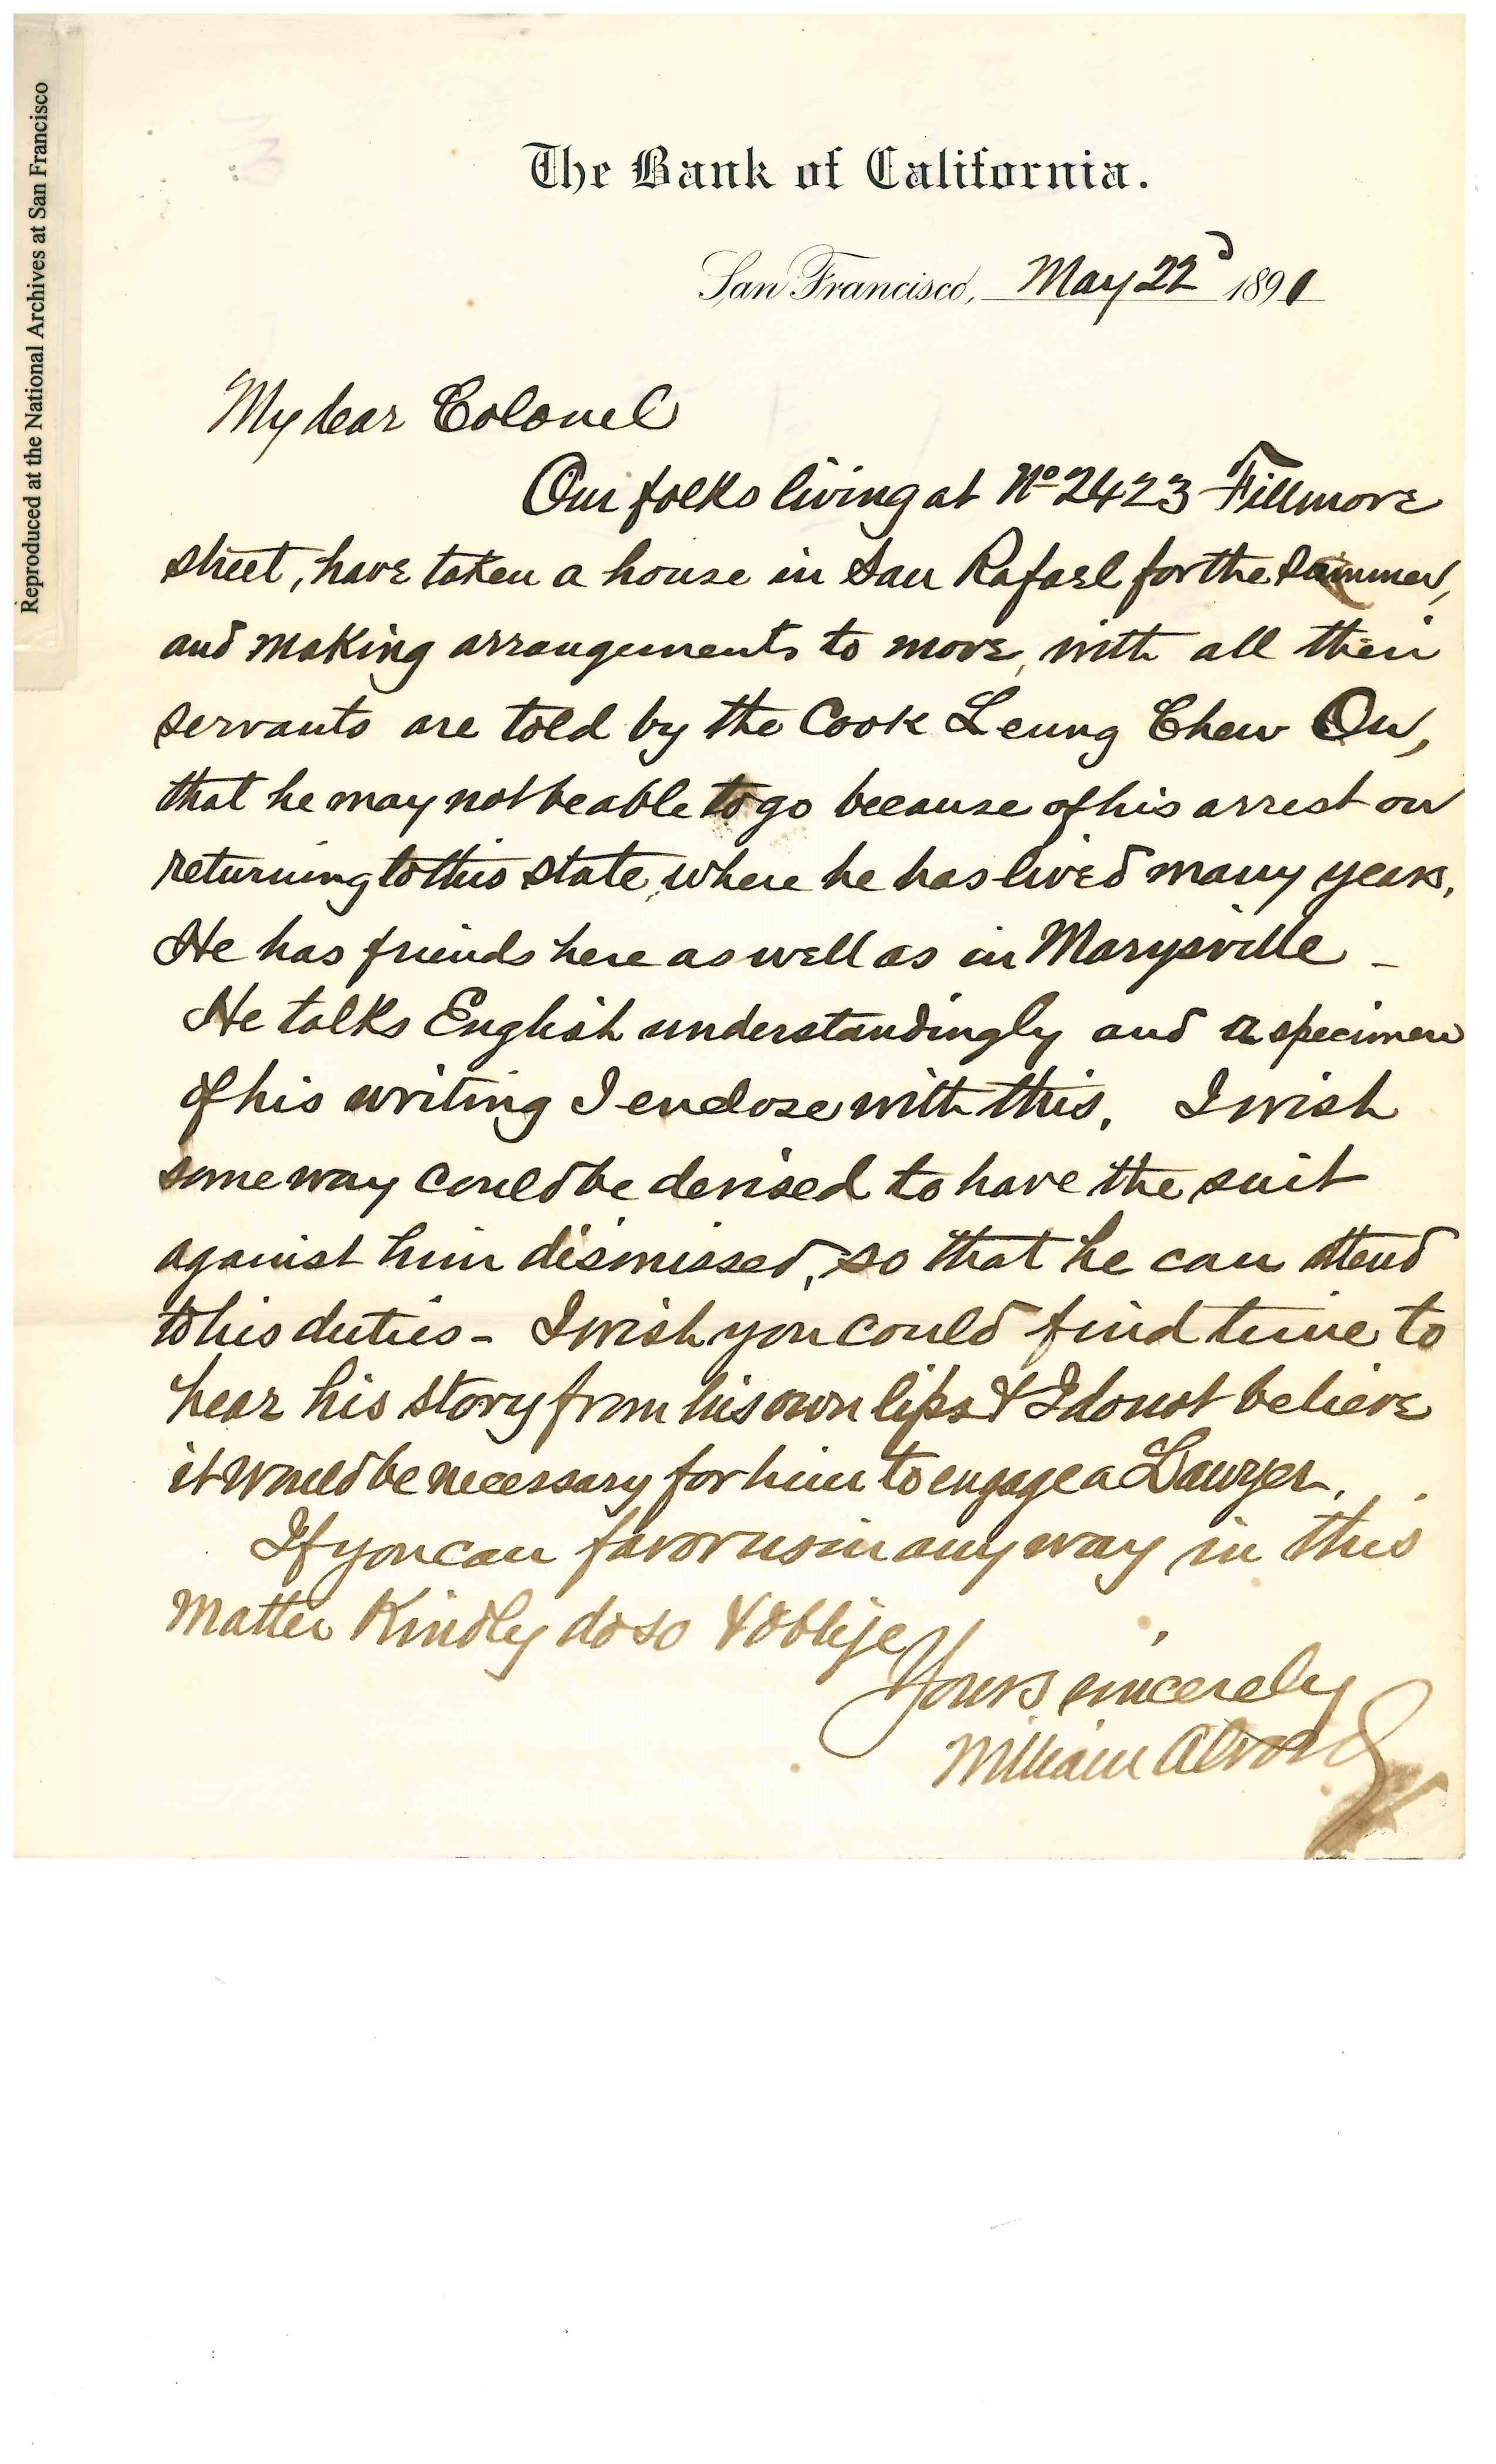 Reproduced at the National Archives at San Francisco
The Bank of California.
San Francisco, May 22d 1891
My dear Colonel
Our folks living at No 2423 Fillmore
street, have taken a house in San Rafael for the Summer,
and making arrangements to move, with all their
servants are told by the Cook Leung Chew On,
that he may not be able to go because of his arrest on
returning to this state, where he has lived many years.
He has friends here as well as in Marysville –
He talks English understandingly and a specimen
of his writing I enclose with this. I wish
some way could be devised to have the suit
against him dismissed, so that he can attend
to his duties – I wish you could find time to
hear his story from his own lips & I do not believe
it would be necessary for him to engage a Lawyer.
If you can favor us in any way in this
matter Kindly do so & oblige
Yours sincerely
William Alvord